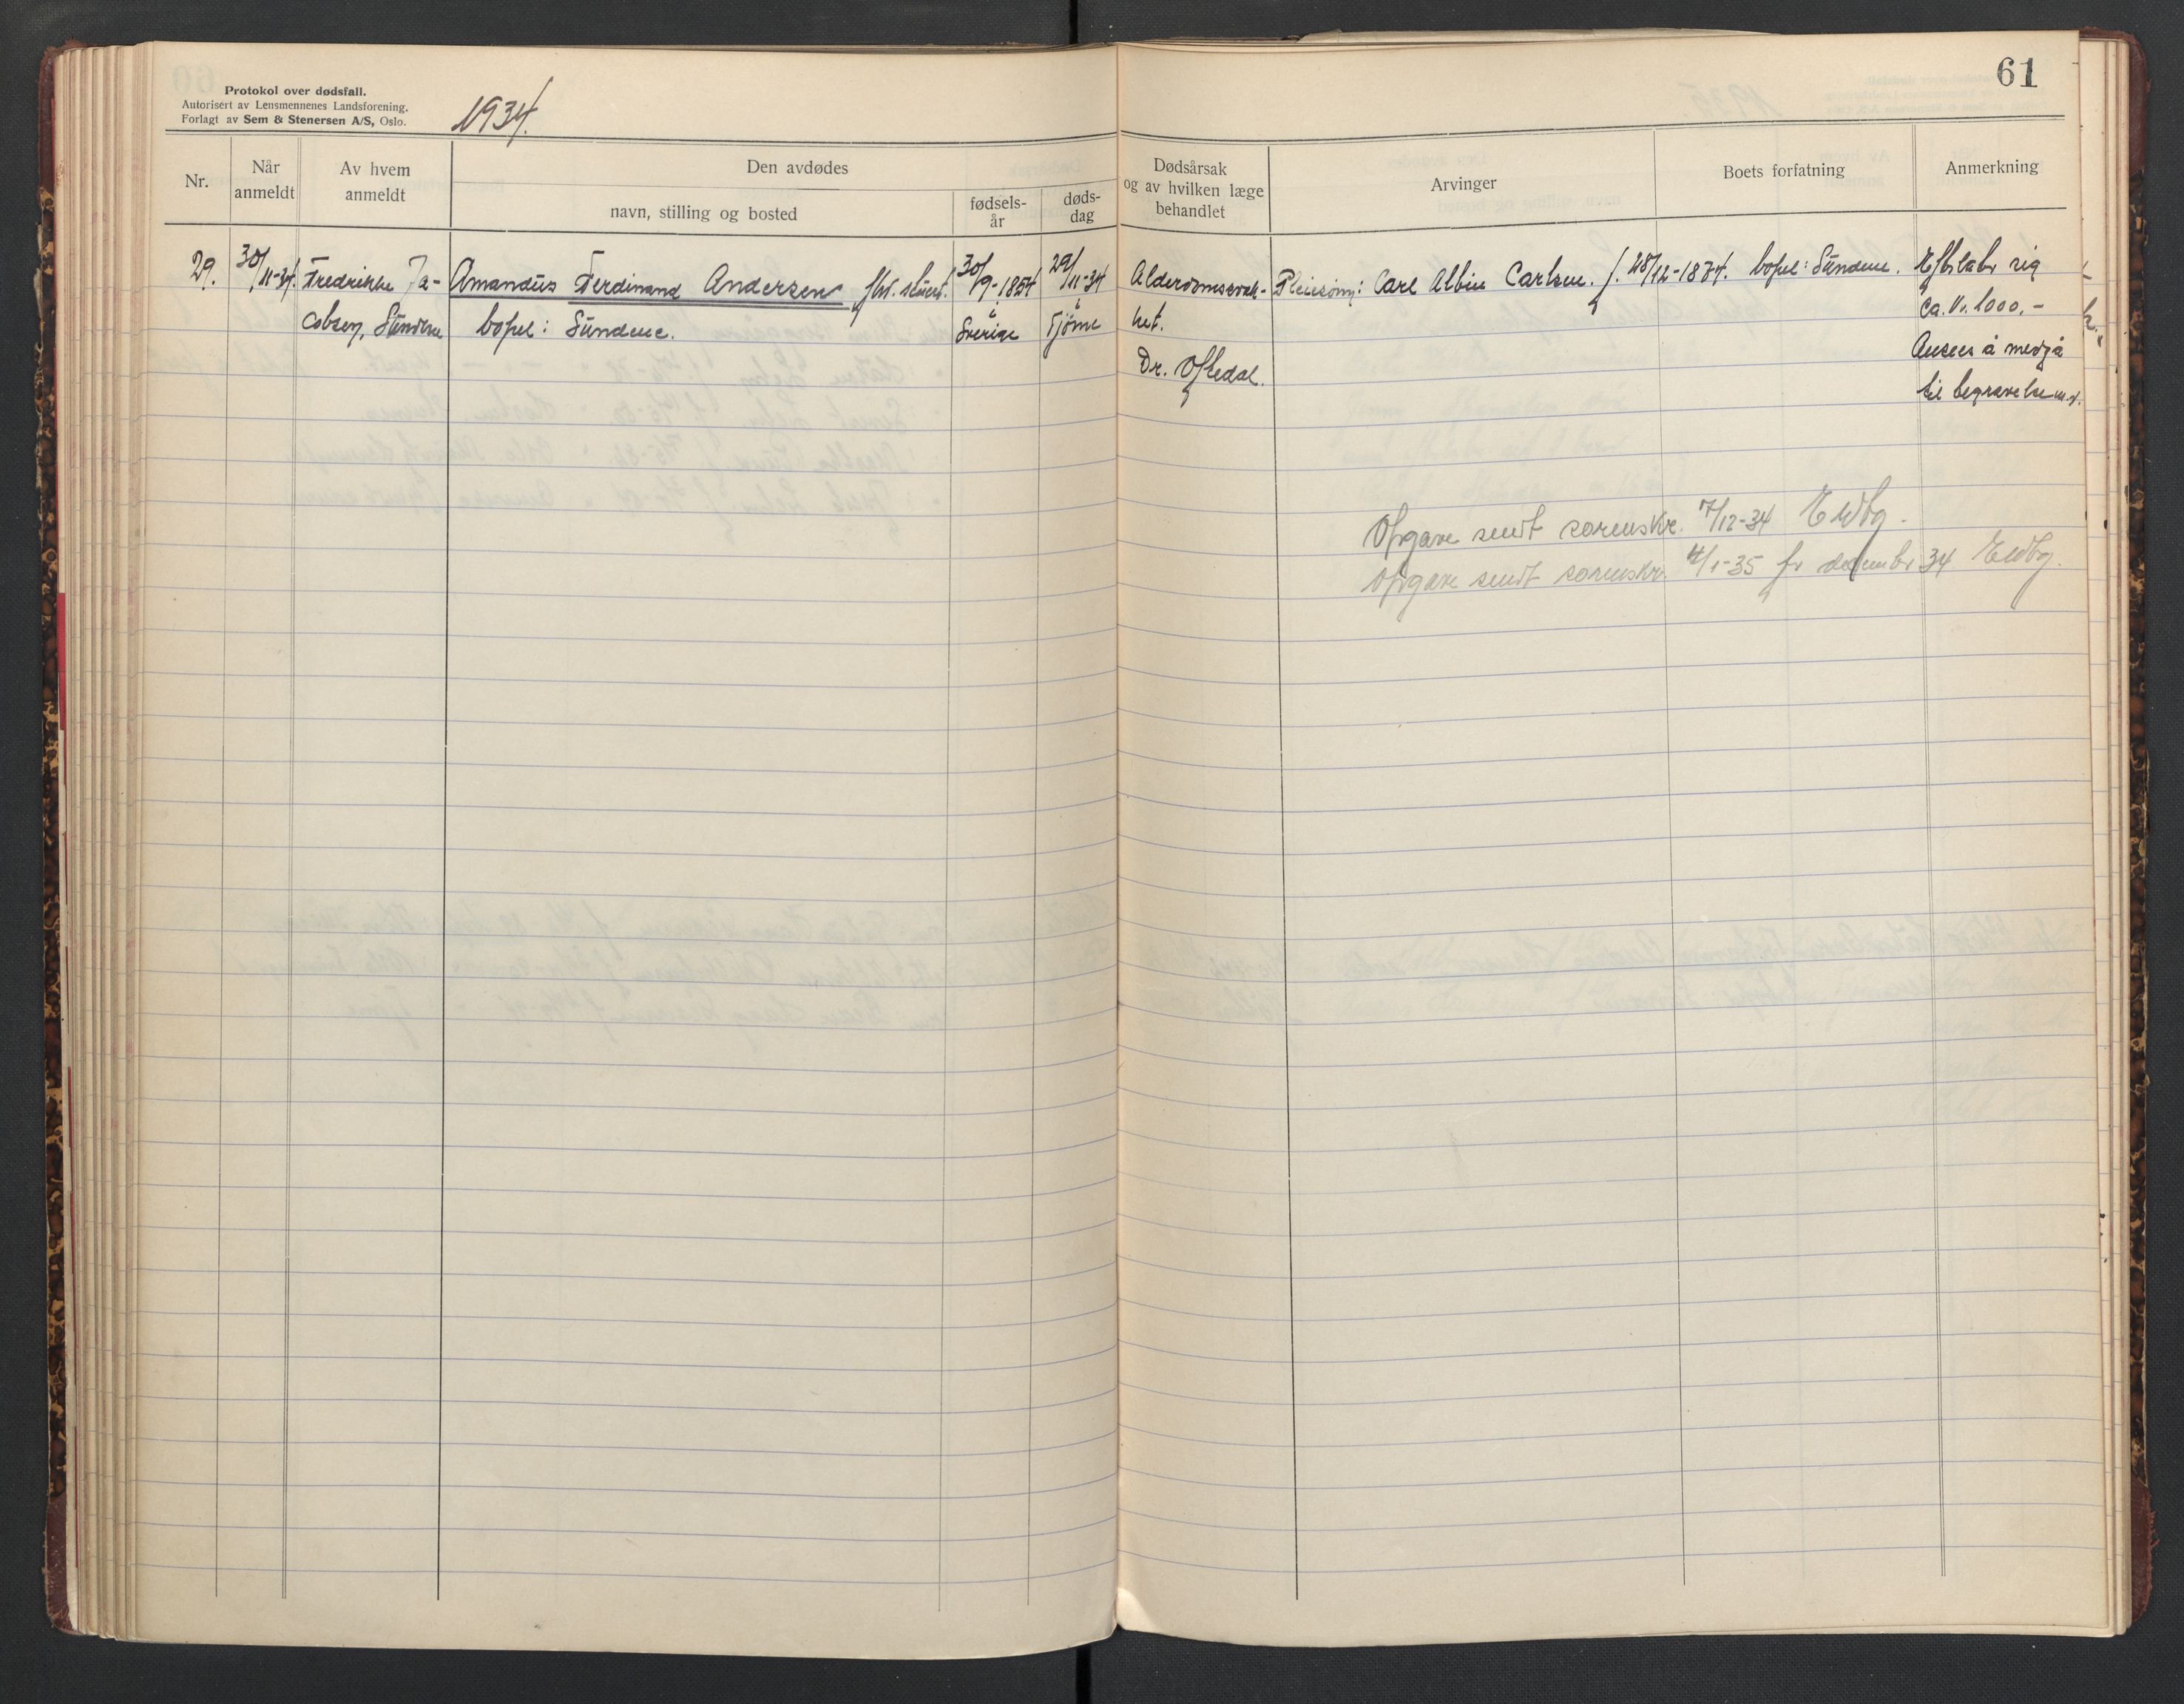 61
Protokol over dødsfall.
Autorisert av Lensmennenes Landsforening.
Forlagt av Sem & Stenersen A/S, Oslo.
1934.
Nr.
Når anmeldt
Av hvem anmeldt
Den avdødes
navn, stilling og bosted
fødsels-år
døds-dag
Dødsårsak og av hvilken læge behandlet
Arvinger
Boets forfatning
Anmerkning
29. 30/11-34. Fredrikke Ja- Amandus Ferdinand Andersen, fhv. stuert. 30/9-1854 29/11-34 Alderdomssvak- Pleiesønn: Carl Albin Carlsen. f. 28/12-1874. bopel: Sundene. Efterlater sig
cobsen, Sundene bopel: Sundene. i Sverige i Tjøme het. ca. kr. 1000.-
Dr. Oftedal. Ansees å medgå
til begravelse m.v.
Opgave sendt sorenskr. 7/12-34
Opgave sendt sorenskr. 4/1-35 fr desember 34